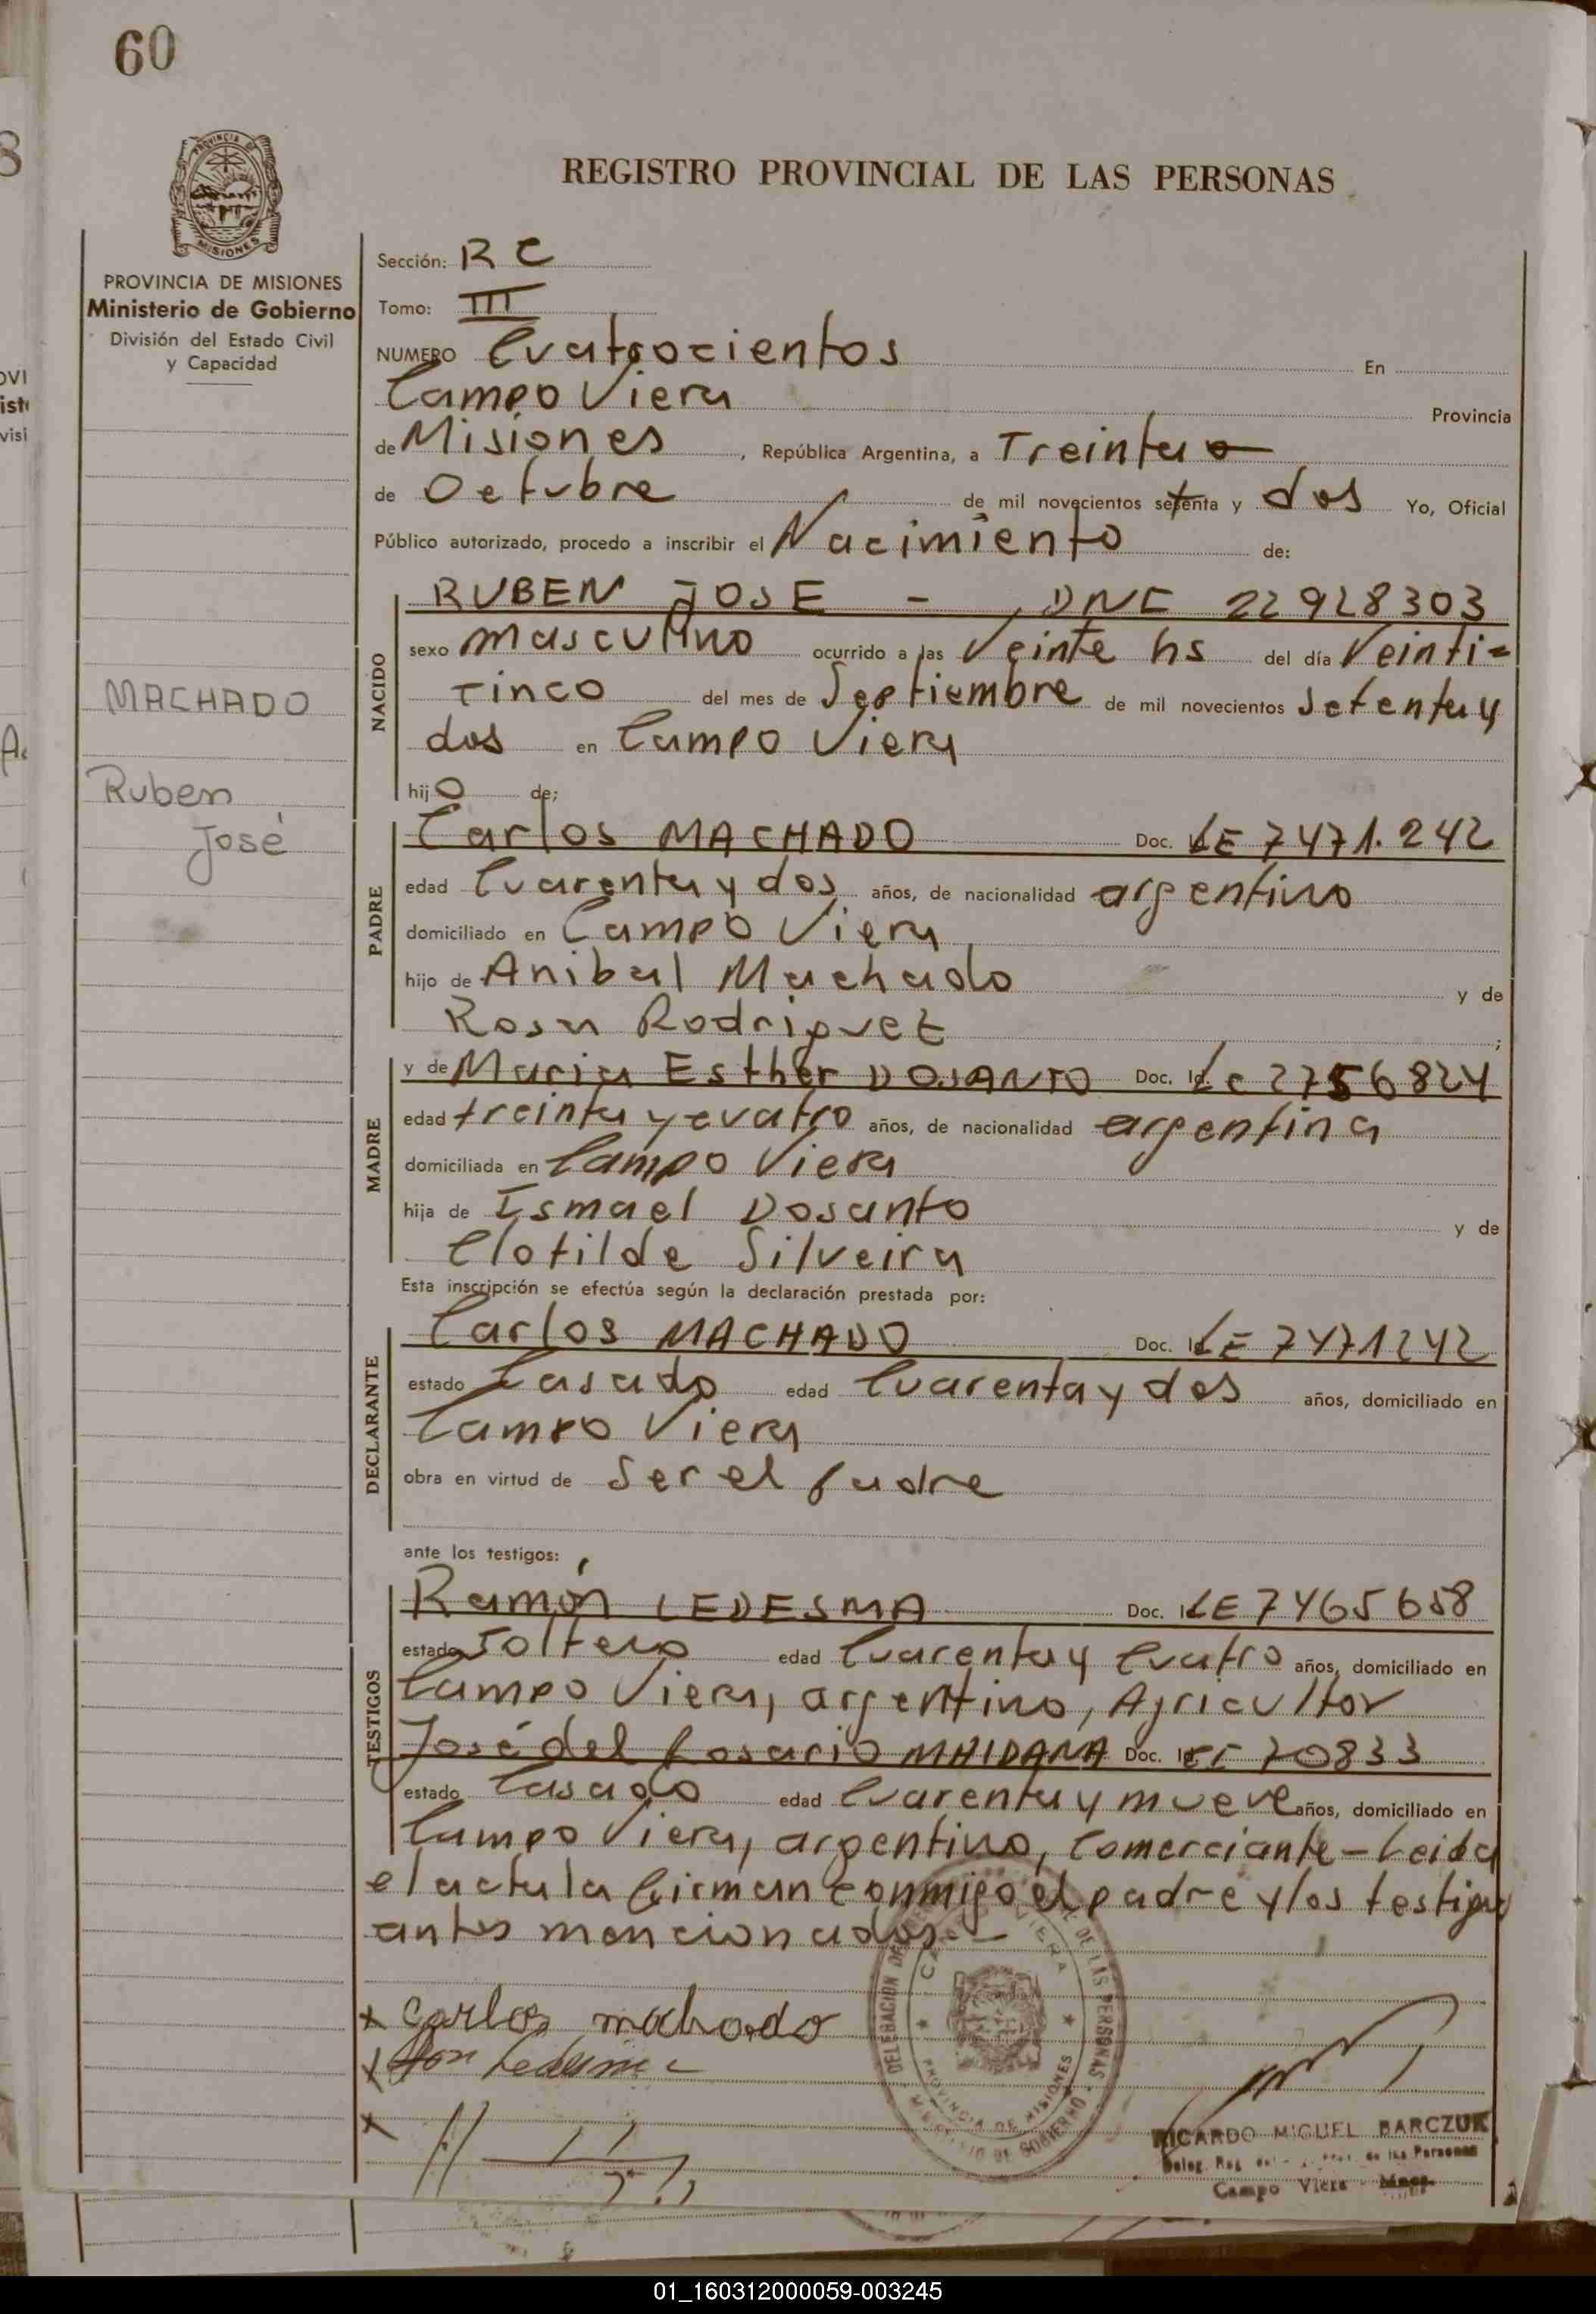 60
REGISTRO PROVINCIAL DE LAS PERSONAS
PROVINCIA DE MISIONES
Ministerio de Gobierno
División del Estado Civil
y Capacidad
MACHADO
Ruben
José
Sección: R C
Tomo: III
NUMERO Cuatrocientos En
Campo Viera Provincia
de Misiones, República Argentina, a Treinta
de Octubre de mil novecientos setenta y dos Yo, Oficial
Público autorizado, procedo a inscribir el Nacimiento de:
NACIDO
RUBEN JOSE - DNI 22928303
sexo masculino ocurrido a las Veinte hs del día Veinti=
cinco del mes de Septiembre de mil novecientos setenta y
dos en Campo Viera
hijo de;
PADRE
Carlos MACHADO Doc. LE 7471.242
edad Cuarenta y dos años, de nacionalidad argentino
domiciliado en Campo Viera
hijo de Anibal Machado y de
Rosa Rodriguez ;
MADRE
y de Maria Esther DOSANTO Doc. Id. Lc 2756824
edad treinta y cuatro años, de nacionalidad argentina
domiciliada en Campo Viera
hija de Ismael Dosanto y de
Clotilde Silveira
Esta inscripción se efectúa según la declaración prestada por:
DECLARANTE
Carlos MACHADO Doc. Id. LE 7471242
estado Casado edad Cuarenta y dos años, domiciliado en
Campo Viera
obra en virtud de Ser el padre
ante los testigos:
TESTIGOS
Ramón LEDESMA Doc. I LE 7465658
estado Soltero edad Cuarenta y Cuatro años, domiciliado en
Campo Viera, argentino, Agricultor
José del Rosario MAIDANA Doc. Id. 70833
estado Casado edad Cuarenta y nueve años, domiciliado en
Campo Viera, argentino, Comerciante - Leida
el acta la firman conmigo el padre y los testigos
antes mencionados.-
x carlos machado
x Ledesma
x
DELEGACION DE LAS PERSONAS
CAMPO VIERA
PROVINCIA DE MISIONES
MINISTERIO DE GOBIERNO
RICARDO MIGUEL BARCZUK
Deleg. Reg. de las Personas
Campo Viera Mnes.
01_160312000059-003245